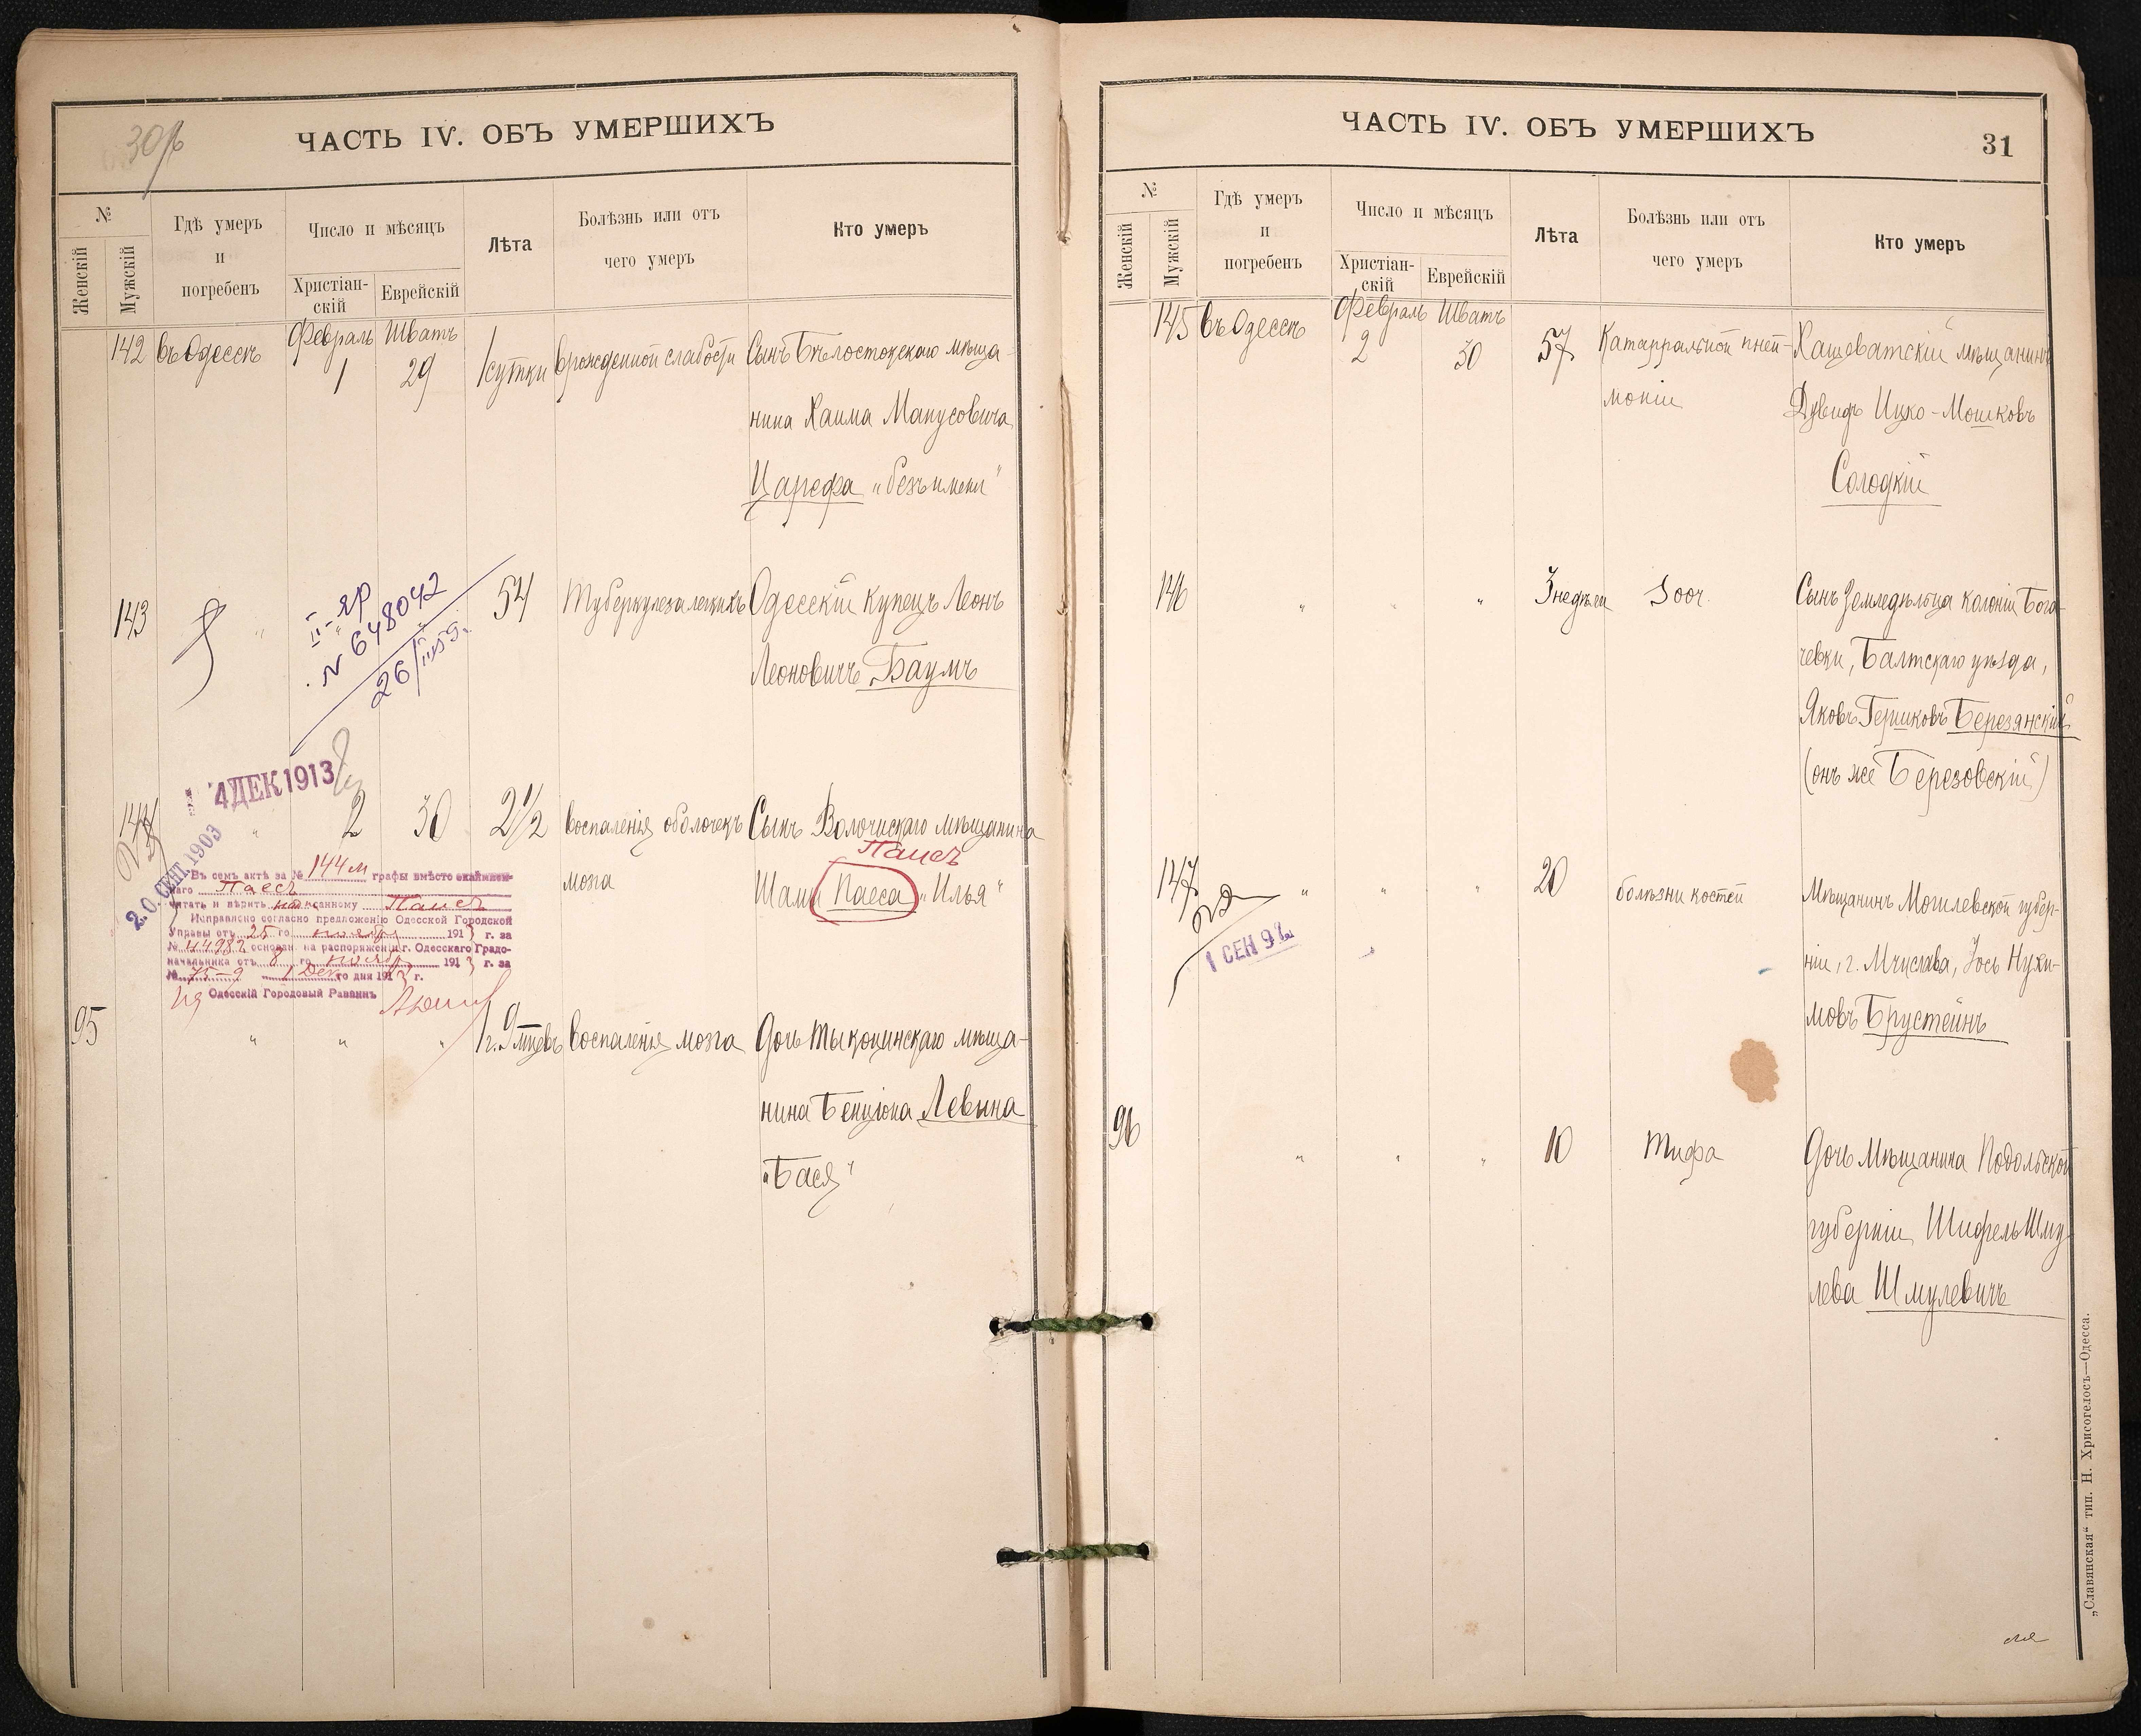 30 об
ЧАСТЬ IV. ОБЪ УМЕРШИХЪ
№
Женскій
Мужскій
Гдѣ умеръ
и
погребенъ
Число и мѣсяцъ
Христіан-
скій
Еврейскій
Лѣта
Болѣзнь или отъ
чего умеръ
Кто умеръ
142 въ Одессѣ Февраль 1 Шватъ 29 1 сутки врожденной слабости Сынъ Бѣлостокскаго мѣща-
нина Хаима Манусовича
Царефа „безъ имени“
143 " 54 Туберкулеза легкихъ Одесскій купецъ Леонъ
Леоновичъ Баумъ
II-ЯР
№ 648042
26/III 59г.
4 ДЕК 1913
20 СЕНТ. 1903
144 " 2 30 2½ воспаленія оболочекъ Сынъ Волочискаго мѣщанина
Паисъ
мозга Шами Паеса „Илья“
Въ семъ актѣ за № 144 м графы вмѣсто
наго Паесъ
читать и вѣрить написанному Паисъ
Исправлено согласно предложенію Одесской Городской
Управы отъ 25 го ноября 1913 г. за
№ 44982 основан. на распоряженіи г. Одесскаго Градо-
начальника отъ 8 го ноября 1913 г. за
№ 75-9 1 Дек го дня 1913 г.
Одесскій Городовый Раввинъ
95 " " " 1 г. 9 мцевъ воспаленія мозга Дочь Тыкоцинскаго мѣща-
нина Бенціона Левина
„Бася“
ЧАСТЬ IV. ОБЪ УМЕРШИХЪ
31
№
Женскій
Мужскій
Гдѣ умеръ
и
погребенъ
Число и мѣсяцъ
Христіан-
скій
Еврейскій
Лѣта
Болѣзнь или отъ
чего умеръ
Кто умеръ
145 въ Одессѣ Февраль 2 Шватъ 30 57 Катарральной пней- Хащеватскій мѣщанинъ
моніи Дувидъ Ицко-Мошковъ
Солодкій
146 " " " 3 недѣли Сынъ Земледѣльца колоніи Бога-
чевки, Балтскаго уѣзда,
Яковъ Гершковъ Березянскій
(онъ же Березовскій)
147 " " " 20 болѣзни костей Мѣщанинъ Могилевской губер-
ніи, г. Мчислава, Іось Нухи-
мовъ Брустейнъ
1 СЕН 97
96 " " " 10 Тифа Дочь Мѣщанина Подольской
губерніи Шифель Шму-
лева Шмулевичъ
„Славянская“ тип. Н. Хрисогелосъ—Одесса.